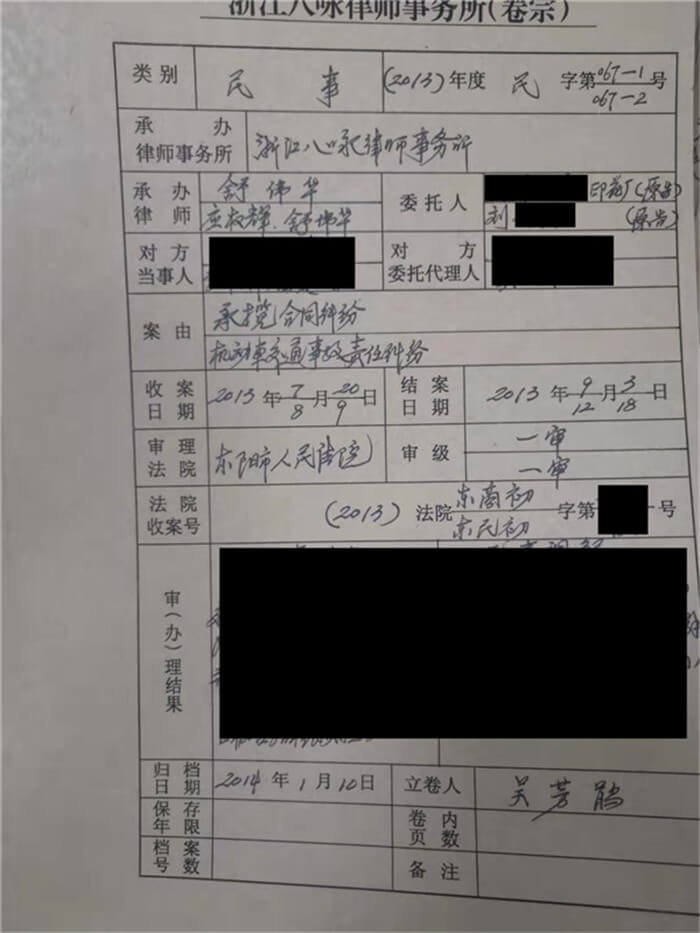 浙江八咏律师事务所(卷宗)
类别 民事 (2013)年度 民 字第067-1 067-2号
承办律师事务所 浙江八咏律师事务所
承办律师 舒伟华 舒伟华 委托人 印刷厂(原告) 刘 (原告)
对方当事人 对方委托代理人
案由 承揽合同纠纷
机动车交通事故责任纠纷
收案日期 2013年7/8月20/9日 结案日期 2013年9/12月3/18日
审理法院 东阳市人民法院 审级 一审
一审
法院收案号 (2013)法院 东商初 东民初 字第 号
审(办)理结果
归档日期 2014年1月10日 立卷人 吴芳鹃
保存年限 卷内页数
档案号数 备注